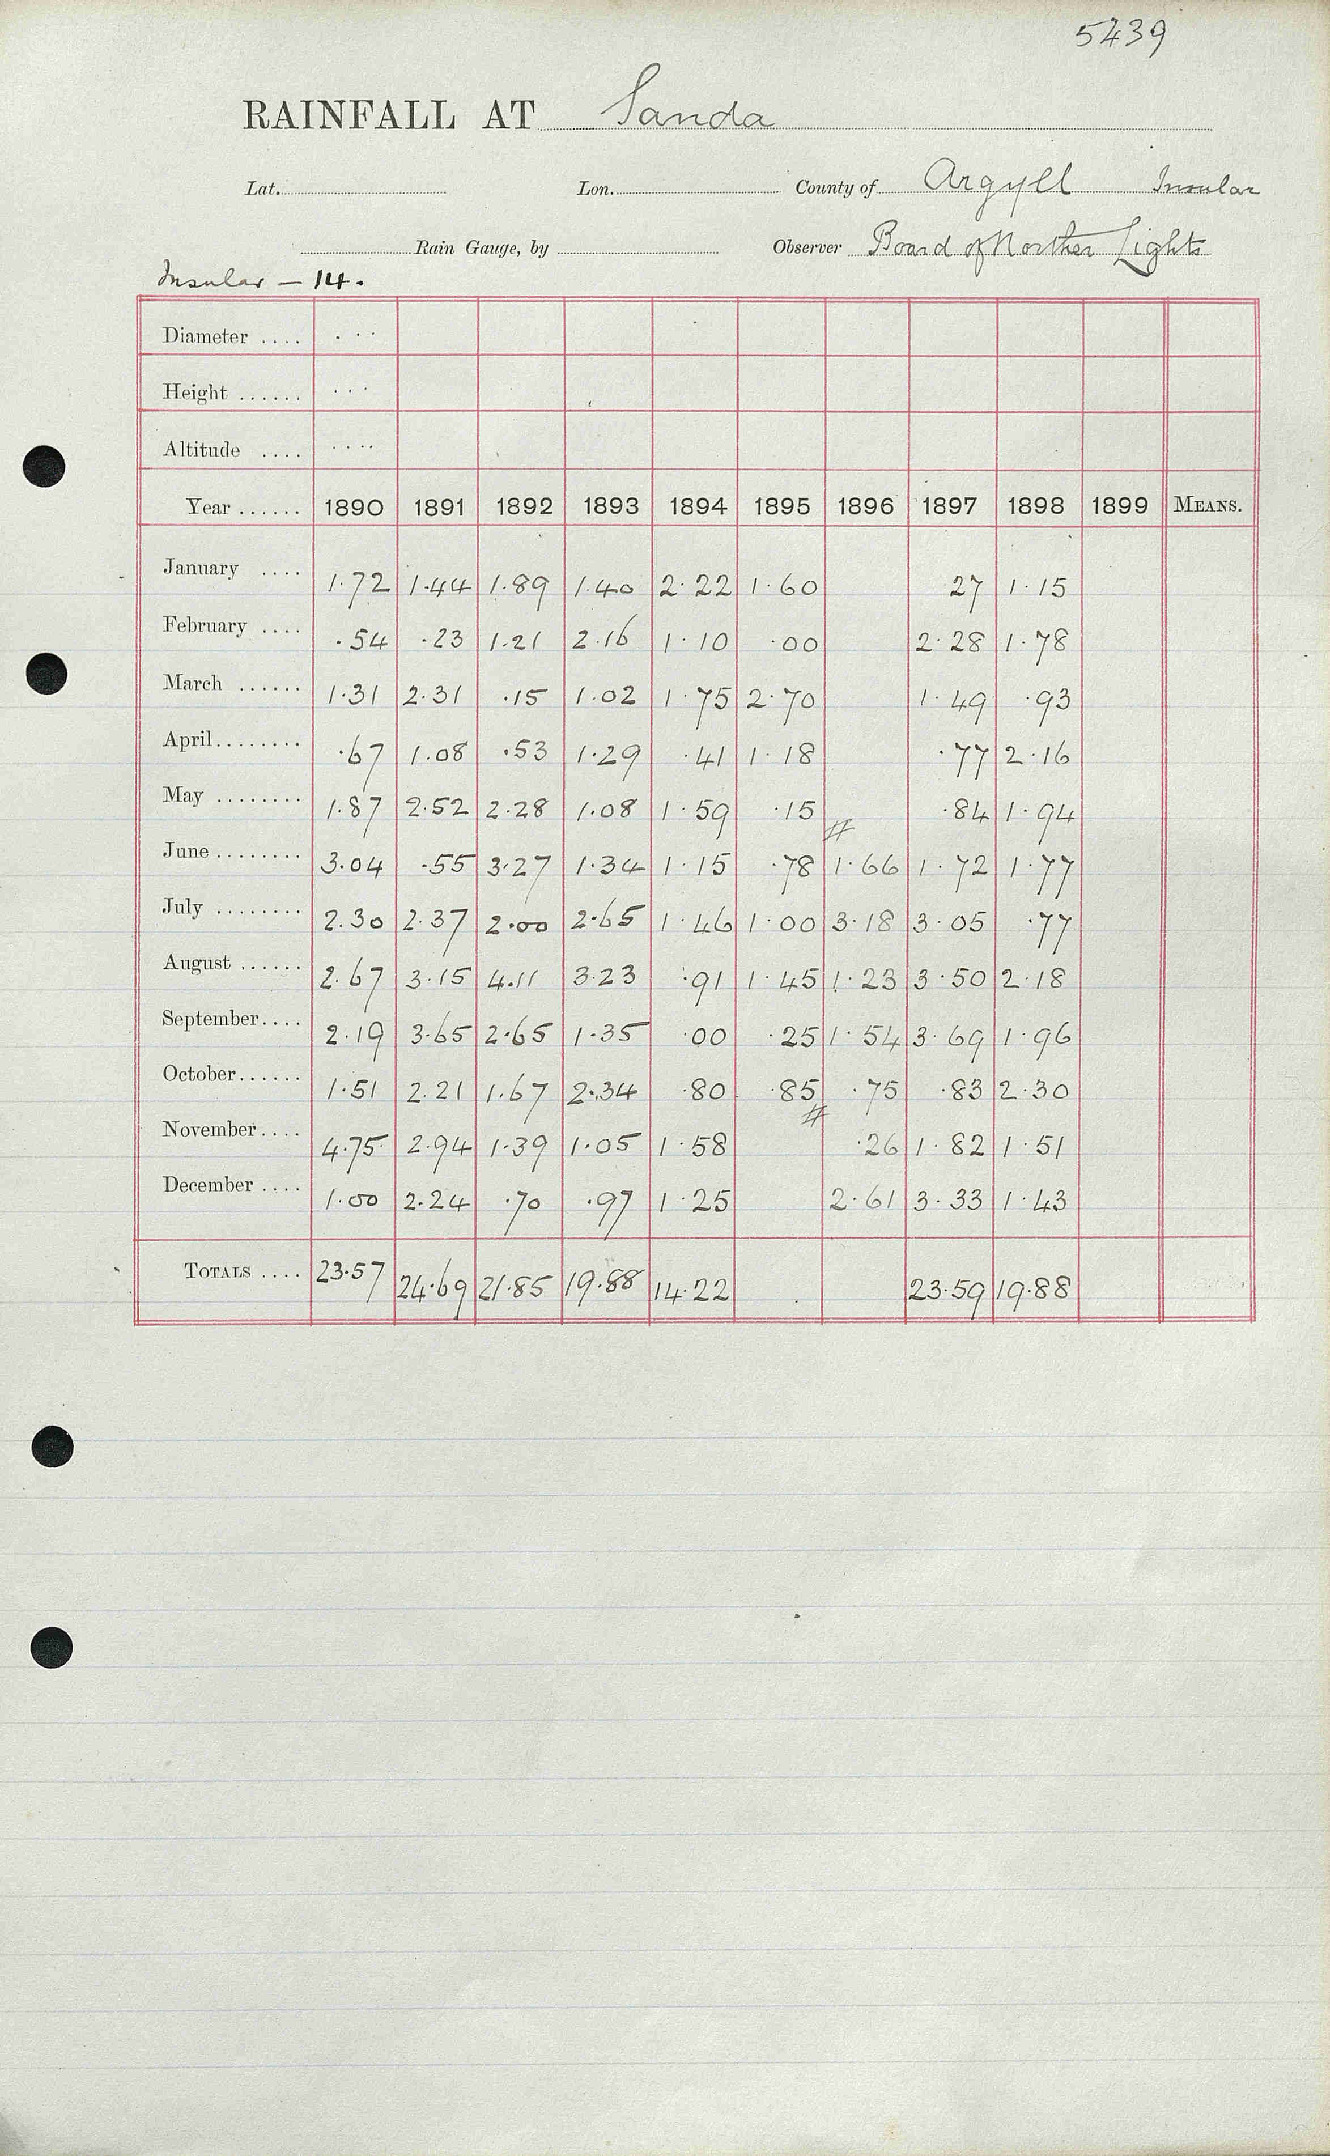 5239
RAINFALL AT Sanda
Lat. Lon. County of Argyll Insular
Rain Gauge, by Observer Board of Norther Lights
Insular — 14.
Diameter .... ...
Height ...... ...
Altitude .... ....
Year ...... 1890 1891 1892 1893 1894 1895 1896 1897 1898 1899 MEANS.
January .... 1.72 1.44 1.89 1.40 2.22 1.60 27 1.15
February .... .54 .23 1.21 2.16 1.10 .00 2.28 1.78
March ...... 1.31 2.31 .15 1.02 1.75 2.70 1.49 .93
April........ .67 1.08 .53 1.29 .41 1.18 .77 2.16
May ........ 1.87 2.52 2.28 1.08 1.59 .15 .84 1.94
June ........ 3.04 .55 3.27 1.34 1.15 .78 # 1.66 1.72 1.77
July ........ 2.30 2.37 2.00 2.65 1.46 1.00 3.18 3.05 .77
August ...... 2.67 3.15 4.11 3.23 .91 1.45 1.23 3.50 2.18
September.... 2.19 3.65 2.65 1.35 .00 .25 1.54 3.69 1.96
October...... 1.51 2.21 1.67 2.34 .80 .85 # .75 .83 2.30
November.... 4.75 2.94 1.39 1.05 1.58 .26 1.82 1.51
December .... 1.00 2.24 .70 .97 1.25 2.61 3.33 1.43
TOTALS .... 23.57 24.69 21.85 19.88 14.22 23.59 19.88